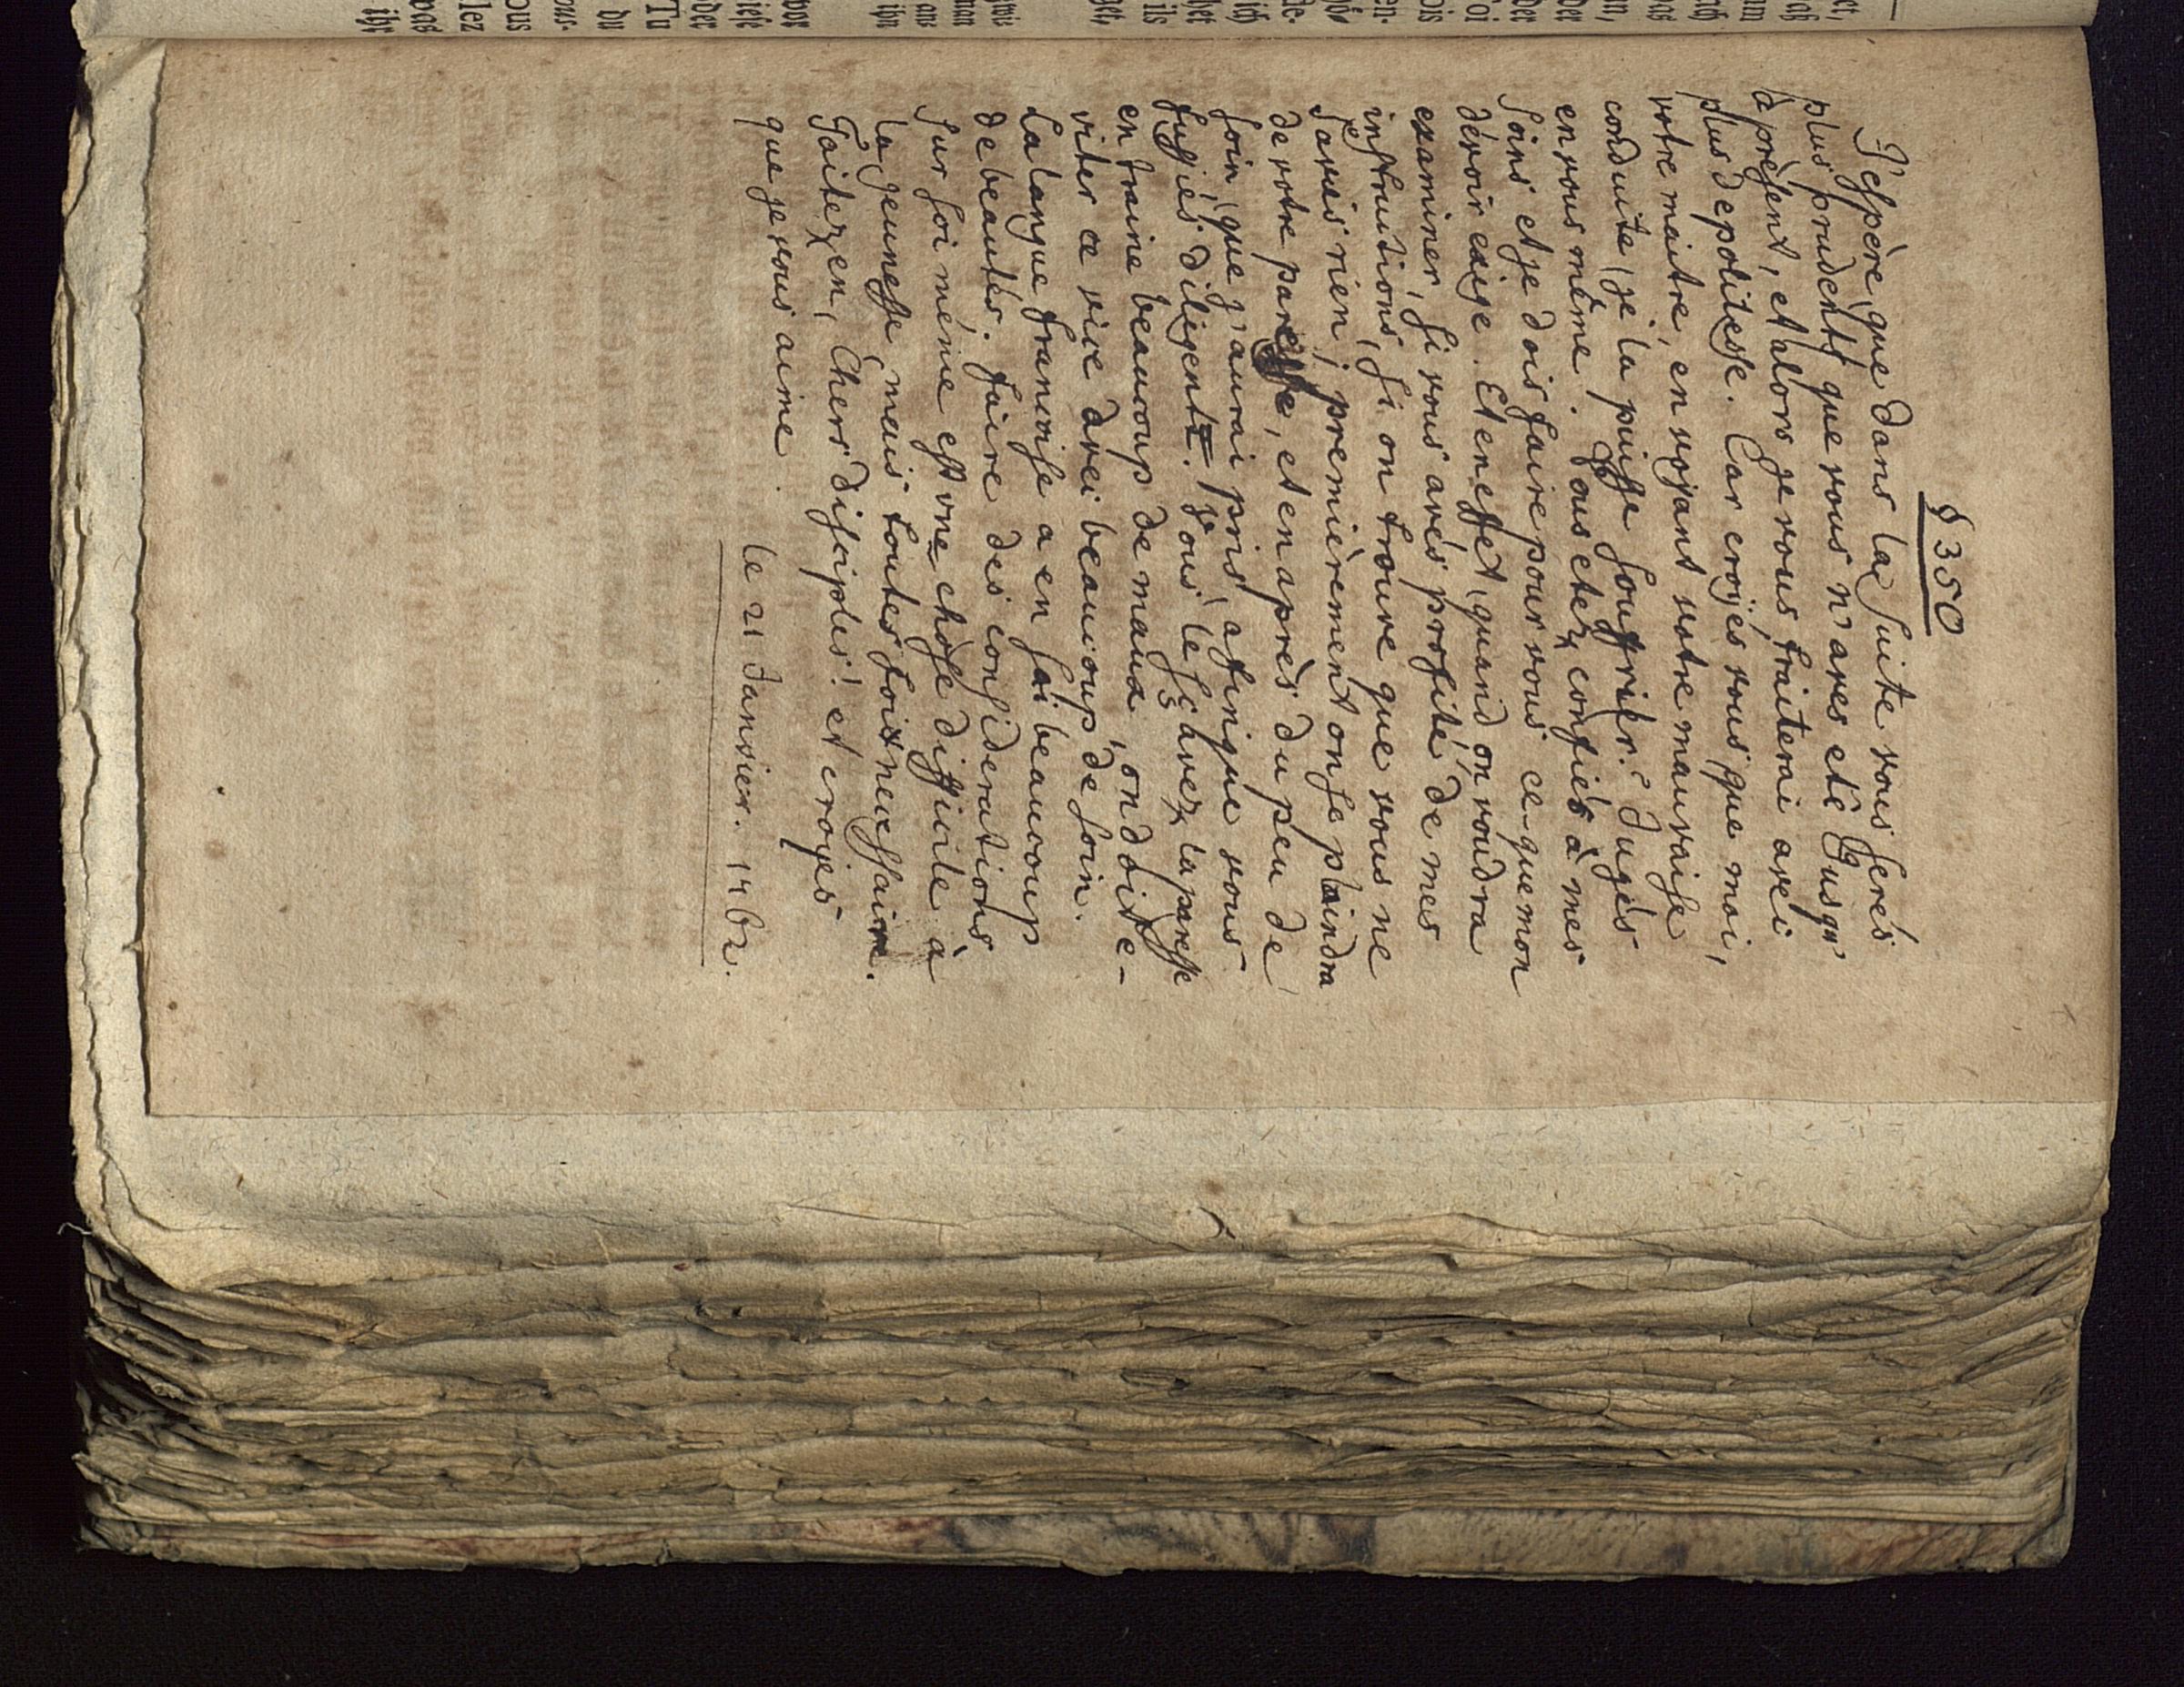 § 350
J'espère, que dans la suite vous serés
plus prudents que vous n'aves eté Jusqu'
à présent, et alors je vous traiterai avec
plus de politesse. Car croyés vous, que moi,
votre maitre, en voyant votre mauvaise
conduite, je la puisse souffrir? Jugés
en vous même. Vous etez confiés à mes
soins et je dois faire pour vous ce que mon
devoir exige. Et en effet, quand on voudra
examiner, si vous avés profité de mes
instructions, si on trouve que vous ne
savés rien, premièrement on se plaindra
de votre paresse, et en après du peu de
soin, que j'aurai pris, afin que vous
fussiés diligent. Vous le sçavez la paresse
entraine beaucoup de maux, on doit e-
viter ce vice avec beaucoup de soin.
La langue francoise a en soi beaucoup
de beautés. faire des considerations
sur soi même est une chose difficile à
la jeunesse, mais toutes fois necessaire.
Faitez en, Chers disciples! et croyés
que je vous aime.
le 21 Janvier. 1762.